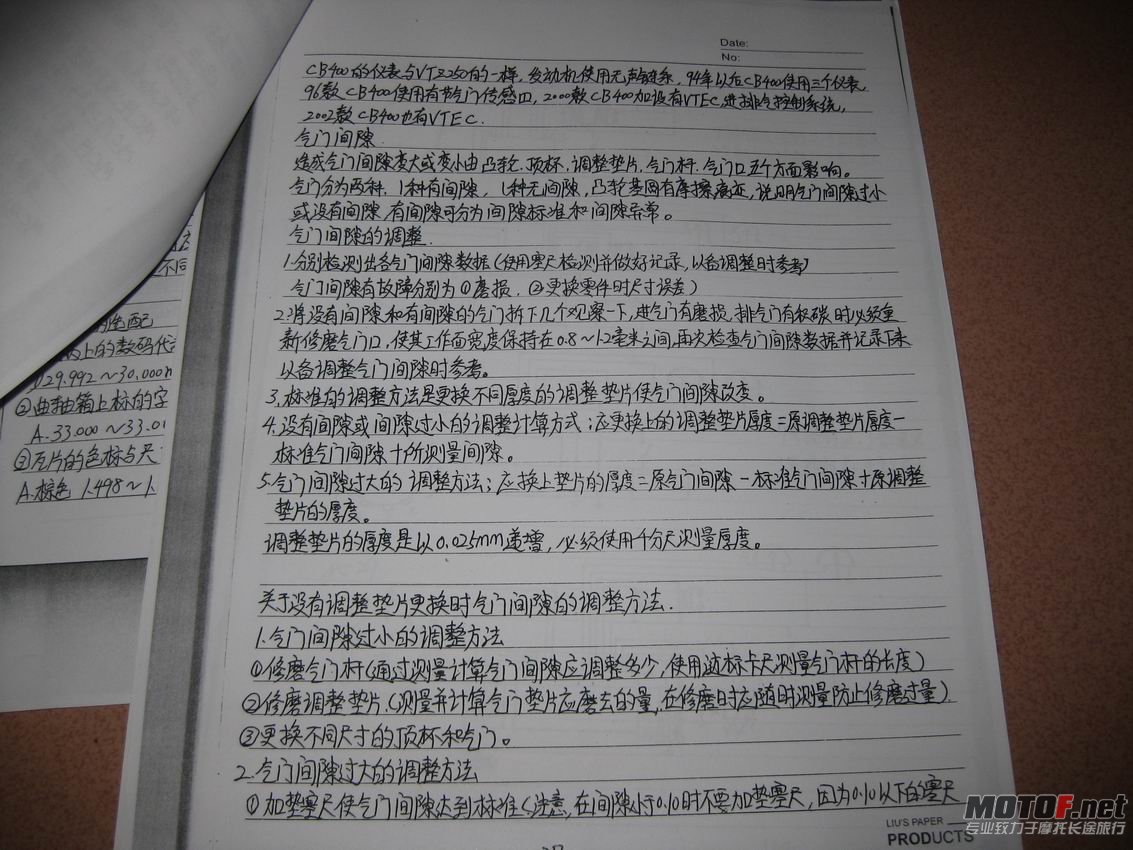 Date:
No:
CB400的仪表与VTZ250的一样，发动机使用无声链系，94年以后CB400使用三个仪表，
96款CB400使用有节气门传感口，2000款CB400加设有VTEC进排气控制系统，
2002款CB400也有VTEC.
气门间隙.
造成气门间隙变大或变小由凸轮、顶杯、调整垫片，气门杆、气门口五个方面影响。
气门分为两种，1种有间隙，1种无间隙，凸轮基圆有摩擦痕迹，说明气门间隙过小
或没有间隙，有间隙可分为间隙标准和间隙异常。
气门间隙的调整.
1.分别检测出各气门间隙数据(使用塞尺检测并做好记录，以备调整时参考)
气门间隙有故障分别为①磨损.②更换零件时尺寸误差)
2.将没有间隙和有间隙的气门拆下几个观察一下，进气门有磨损，排气门有积碳时必须重
新修磨气门口，使其工作面宽度保持在0.8～1.2毫米之间，再次检查气门间隙数据并记录下来
以备调整气门间隙时参考。
3.标准的调整方法是更换不同厚度的调整垫片使气门间隙改变。
4.没有间隙或间隙过小的调整计算方式；应更换上的调整垫片厚度=原调整垫片厚度－
标准气门间隙十所测量间隙。
5.气门间隙过大的调整方法；应换上垫片的厚度=原气门间隙－标准气门间隙十原调整
垫片的厚度。
调整垫片的厚度是以0.025mm递增，必须使用千分尺测量厚度。
关于没有调整垫片更换时气门间隙的调整方法.
1.气门间隙过小的调整方法
①修磨气门杆(通过测量计算气门间隙应调整多少，使用游标卡尺测量气门杆的长度)
②修磨调整垫片.(测量并计算气门垫片应磨去的量，在修磨时应随时测量防止修磨过量)
③更换不同尺寸的顶杯和气门。
2.气门间隙过大的调整方法
①加垫塞尺使气门间隙达到标准<注意，在间隙小于0.10时不要加垫塞尺，因为0.10以下的塞尺
LIU'S PAPER
PRODUCTS
不同
色配
上的数码代
29.992～30.000m
②曲轴箱上标的字
A.33.000～33.01
③瓦片的色标与尺
A.棕色 1.498～1.
MOTOF.net
专业致力于摩托长途旅行